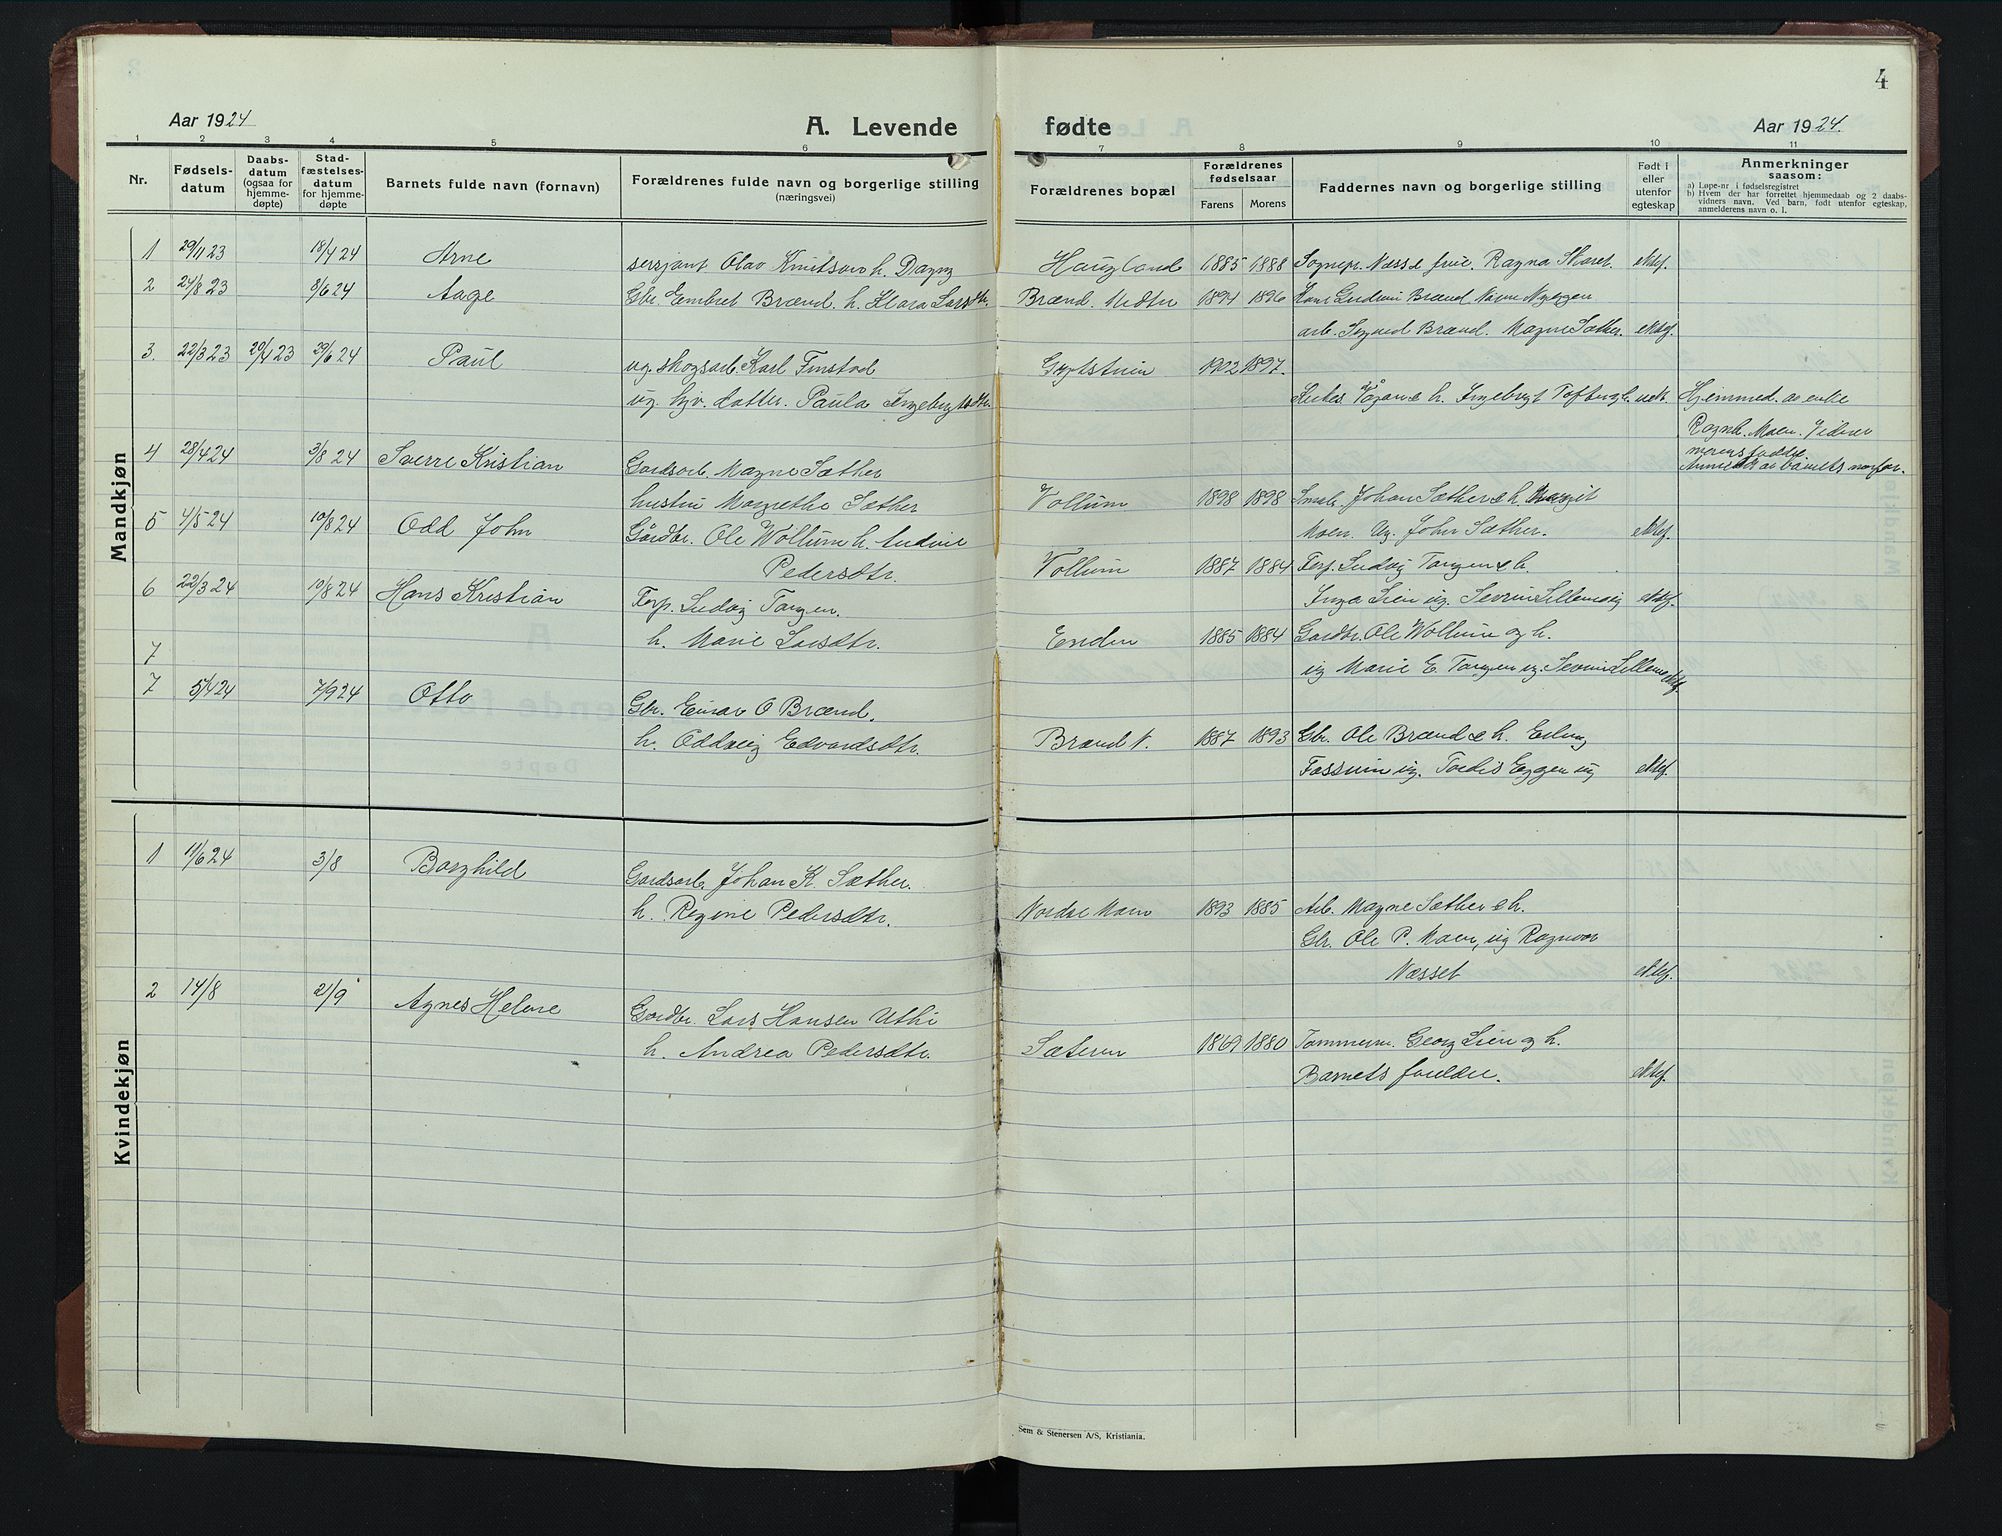 4
Aar 1924
A. Levende fødte
Aar 1924.
1 2 3 4 5 6 7 8 9 10 11
Nr.
Fødsels-
datum
Daabs-
datum
(ogsaa for
hjemme-
døpte)
Stad-
fæstelses-
datum
for hjemme-
døpte
Barnets fulde navn (fornavn)
Forældrenes fulde navn og borgerlige stilling
(næringsvei)
Forældrenes bopæl
Forældrenes
fødselsaar
Farens Morens
Faddernes navn og borgerlige stilling
Født i
eller
utenfor
egteskap
Anmerkninger
saasom:
a) Løpe-nr i fødselsregistret
b) Hvem der har forrettet hjemmedaab og 2 daabs-
vidners navn. Ved barn, født utenfor egteskap,
anmelderens navn o. l.
Mandkjøn
1 29/11 23 18/4 24 Arne serzjant Olav Knutson h. Dagny Haugland 1885 1888 Sognepr. Næss & frue. Ragna Skaret. ektef.
2 24/8 23 8/6 24 Aage Gbr. Embret Brænd. h. Klara Larsdtr. Brænd. Nedtre 1894 1896 Hans Gudrun Brænd
arb. Brænd. Magne Sæther. ektef.
3. 22/3 23 20/4 23 29/6 24 Paul ug. skogsarb. Karl Finstad 1902 1897.
ug. hjv. datter. Paula Ingebrigtsdtr. h. Ingebrigt ued. Hjemmed. av enke
Ragnh. Moen. Vidner
4 28/4 24 3/8 24 Sverre Kristian Gardsarb. Magne Sæther av barnets morfar.
hustru Margrethe Sæther Vollum 1898 1898 Johan Sæther & h.
5 4/5 24 10/8 24 Odd John Gårdbr. Ole Wollum h. Moen. Ug. John Sæther. ektef.
Pedersdtr. Vollum 1887 1884 Forp. Ludvig Tangen & h.
6 22/3 24 10/8 24 Hans Kristian Forp. Ludvig Tangen. Inga Lien ug. Severin ektef.
h. Marie Larsdtr. Enden 1885 1884 Gardbr. Ole Wollum og h.
7 ug Marie E. Tangen ug. Severin
7 5/4 24 7/9 24 Otto Gbr. Einar O Brænd.
h. Oddveig Edvardsdtr. Brænd N. 1887 1893 Gbr. Ole Brænd & h. Erling
Fossum ug. Tordis Eggen ug ektef.
Kvindekjøn
1 11/6 24 3/8 Borghild Gardsarb. Johan K. Sæther.
h. Regine Pedersdtr. Nordre Moen 1893 1885 Arb. Magne Sæther & h.
Gbr. Ole P. Moen, ug Ragnvor
Næsset ektef.
2 14/8 21/9 Agnes Helene Gardbr. Lars Hansen Uthi
h. Andrea Pedersdtr. Sæteren 1869 1880 Tømmerm. Georg Lien og h.
Barnets foreldre. ektef.
Sem & Stenersen A/S, Kristiania.